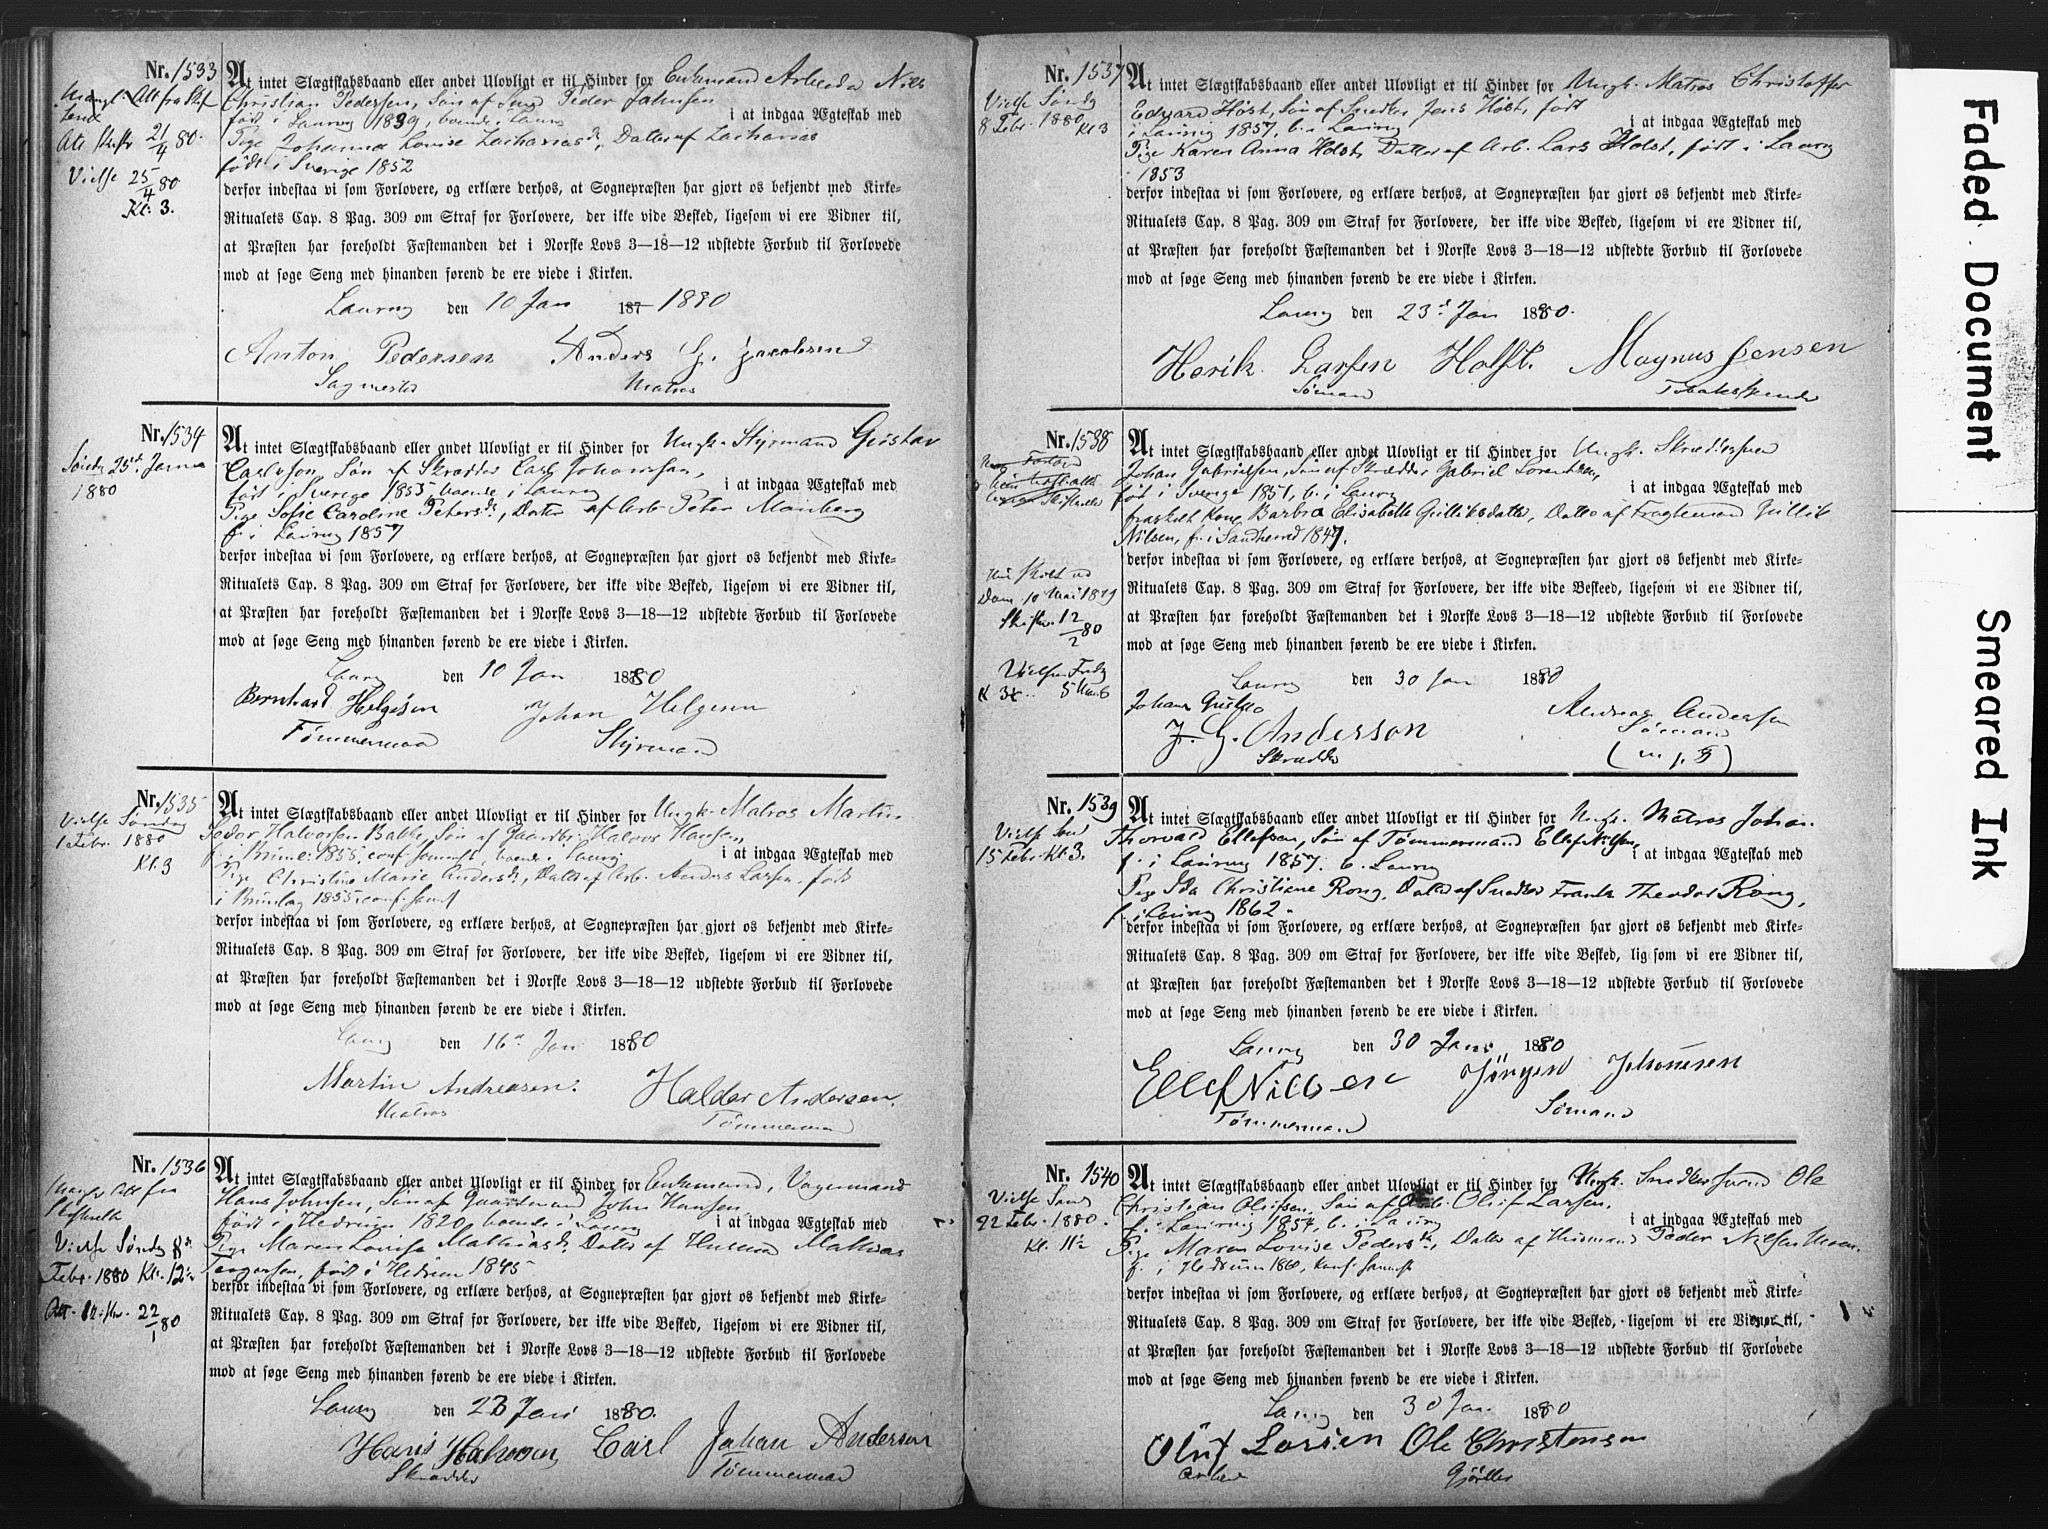 Nr. 1533
At intet Slægtskabsbaand eller andet Ulovligt er til Hinder for Enkemand Arbeider Nils
Christian Pedersen, Søn af Peder Johnsen
født i Laurvig 1839, boende i Laurv i at indgaa Ægteskab med
Pige Johanna Lovise Zachariasd., Datter af Zacharias
født i Sverige 1852
derfor indestaa vi som Forlovere, og erklære derhos, at Sognepræsten har gjort os bekjendt med Kirke-
Ritualets Cap. 8 Pag. 309 om Straf for Forlovere, der ikke vide Besked, ligesom vi ere Vidner til,
at Præsten har foreholdt Fæstemanden det i Norske Lovs 3—18—12 udstedte Forbud til Forlovede
mod at søge Seng med hinanden førend de ere viede i Kirken.
Laurvig den 10 Jan 187 1880
Anton Pedersen Anders G. Jacobsen
Sagmester Matros
Att fra Skif
21/4 80.
Vielse 25/4 80
Kl. 3.
Nr. 1534
At intet Slægtskabsbaand eller andet Ulovligt er til Hinder for Ungk. Styrmand Gustav
Carlsson, Søn af Skrædder Carl Johansson,
født i Sverige 1855, boende i Laurvig i at indgaa Ægteskab med
Pige Sofie Caroline Petersd., Datter af Arb. Peter Moniberg
f. i Laurvig 1857
derfor indestaa vi som Forlovere, og erklære derhos, at Sognepræsten har gjort os bekjendt med Kirke-
Ritualets Cap. 8 Pag. 309 om Straf for Forlovere, der ikke vide Besked, ligesom vi ere Vidner til,
at Præsten har foreholdt Fæstemanden det i Norske Lovs 3—18—12 udstedte Forbud til Forlovede
mod at søge Seng med hinanden førend de ere viede i Kirken.
Laurvig den 10 Jan 1880
Bernhard Helgesen Johan Helgesen
Tømmermand Styrmand
Søndg 25d Januar
1880
Nr. 1535
At intet Slægtskabsbaand eller andet Ulovligt er til Hinder for Ungk. Matros Martin
Peder Halvorsen Bakke, Søn af Gaardbr. Halvor Hansen,
f. i Brunl. 1855, conf. sammst., boende i Laurvig i at indgaa Ægteskab med
Pige Christine Marie Andersd., Datter af Arb. Anders Larsen, født
i Brunlag 1855, conf. samst
derfor indestaa vi som Forlovere, og erklære derhos, at Sognepræsten har gjort os bekjendt med Kirke-
Ritualets Cap. 8 Pag. 309 om Straf for Forlovere, der ikke vide Besked, ligesom vi ere Vidner til,
at Præsten har foreholdt Fæstemanden det i Norske Lovs 3—18—12 udstedte Forbud til Forlovede
mod at søge Seng med hinanden førend de ere viede i Kirken.
Laurvig den 16de Jan 1880
Martin Andreasen. Haldor Andersen.
Matros Tømmermand
Vielse Søndag
1 Febr. 1880
Kl. 3
Nr. 1536
At intet Slægtskabsbaand eller andet Ulovligt er til Hinder for Enkemand, Vognmand
Hans Johnsen, Søn af Gaardmand John Hansen
født i Hedrum 1820, boende i Laurvig i at indgaa Ægteskab med
Pige Maren Lovise Mathiasd., Datter af Husmd Mathias
Jørgensen, født i Hedrum 1845
derfor indestaa vi som Forlovere, og erklære derhos, at Sognepræsten har gjort os bekjendt med Kirke-
Ritualets Cap. 8 Pag. 309 om Straf for Forlovere, der ikke vide Besked, ligesom vi ere Vidner til,
at Præsten har foreholdt Fæstemanden det i Norske Lovs 3—18—12 udstedte Forbud til Forlovede
mod at søge Seng med hinanden førend de ere viede i Kirken.
Laurvig den 23 Jan 1880.
Hans Halvorsen Carl Johan Andersen
Skrædder Tømmermand
Att fra
Skifteretten
Vielse Søndg 8de
Febr. 1880 Kl. 12½
22/1 80
Nr. 1537
At intet Slægtskabsbaand eller andet Ulovligt er til Hinder for Ungk. Matros Christoffer
Edvard Høst, Søn af Snedker Jens Høst, født
i Laurvig 1857, b. i Laurvig i at indgaa Ægteskab med
Pige Karen Anna Holst, Datter af Arb. Lars Holst, født i Laurvig
1853
derfor indestaa vi som Forlovere, og erklære derhos, at Sognepræsten har gjort os bekjendt med Kirke-
Ritualets Cap. 8 Pag. 309 om Straf for Forlovere, der ikke vide Besked, ligesom vi ere Vidner til,
at Præsten har foreholdt Fæstemanden det i Norske Lovs 3—18—12 udstedte Forbud til Forlovede
mod at søge Seng med hinanden førend de ere viede i Kirken.
Laurvig den 23d Jan 1880.
Henrik Larsen Holst. Magnus Jensen
Sømand Tobaksspinder
Vielse Søndg
8 Febr. 1880 Kl 3
Nr. 1538
At intet Slægtskabsbaand eller andet Ulovligt er til Hinder for Ungk. Skræddersvend
Johan Gabrielsen, Søn af Skrædder Gabriel Lorentzen,
født i Sverige 1851, b. i Laurvig i at indgaa Ægteskab med
fraskilt Kone Barbra Elisabeth Gulliksdatter, Datter af Fragtemand Gullik
Nilsen, f. i Sandherred 1847.
derfor indestaa vi som Forlovere, og erklære derhos, at Sognepræsten har gjort os bekjendt med Kirke-
Ritualets Cap. 8 Pag. 309 om Straf for Forlovere, der ikke vide Besked, ligesom vi ere Vidner til,
at Præsten har foreholdt Fæstemanden det i Norske Lovs 3—18—12 udstedte Forbud til Forlovede
mod at søge Seng med hinanden førend de ere viede i Kirken.
Laurvig den 30 Jan 1880
Johan Gustav Andreas Andersen
J. G. Anderson Sømand
Skrædder (m. p. P)
Skilt ved
Dom 10 Mai 1879
12/2 80
Vielse Fredg
Kl 3 5 Marts
Nr. 1539
At intet Slægtskabsbaand eller andet Ulovligt er til Hinder for Ungk. Matros Johan
Thorvald Ellefsen, Søn af Tømmermand Ellef Nilsen,
f. i Laurvig 1857, b. Laurvig i at indgaa Ægteskab med
Pige Ida Christiane Rong, Datter af Snedker Frantz Theodor Rong,
f. i Laurvig 1862
derfor indestaa vi som Forlovere, og erklære derhos, at Sognepræsten har gjort os bekjendt med Kirke-
Ritualets Cap. 8 Pag. 309 om Straf for Forlovere, der ikke vide Besked, lig som vi ere Vidner til,
at Præsten har foreholdt Fæstemanden det i Norske Lovs 3—18—12 udstedte Forbud til Forlovede
mod at søge Seng med hinanden førend de ere viede i Kirken.
Laurvig den 30 Jan 1880
Ellef Nilsen Jørgen Johannesen
Tømmermand Sømand
Vielse Sønd
15 Febr. Kl. 3.
Nr. 1540
At intet Slægtskabsbaand eller andet Ulovligt er til Hinder for Ungk. Snedkersvend Ole
Christian Olufsen, Søn af Arb. Oluf Larsen,
f. i Laurvig 1854, b. i Laurvig i at indgaa Ægteskab med
Pige Maren Lovise Pedersd., Datter af Husmand Peder Nilsen
f. i Hedrum 1860, konf. sammst
derfor indestaa vi som Forlovere, og erklære derhos, at Sognepræsten har gjort os bekjendt med Kirke-
Ritualets Cap. 8 Pag. 309 om Straf for Forlovere, der ikke vide Besked, ligesom vi ere Vidner til,
at Præsten har foreholdt Fæstemanden det i Norske Lovs 3—18—12 udstedte Forbud til Forlovede
mod at søge Seng med hinanden førend de ere viede i Kirken.
Laurvig den 30 Jan 1880
Oluf Larsen Ole Christensen
Arbeider Gjørtler
Vielse Søndg
22 Febr. 1880.
Kl. 11½
Faded Document Smeared Ink